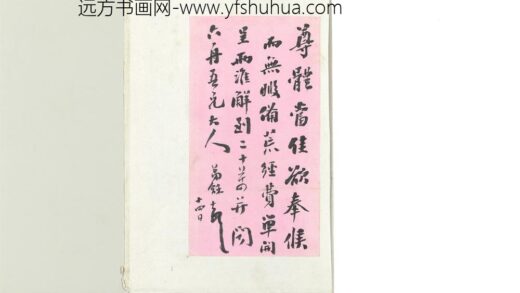 远方书画网-www.yfshuhua.com
尊體當佳欲奉候
而無暇備荒經費單開
呈兩淮解到二十萬并閱
六舟吾兄大人
弟銓
十四日